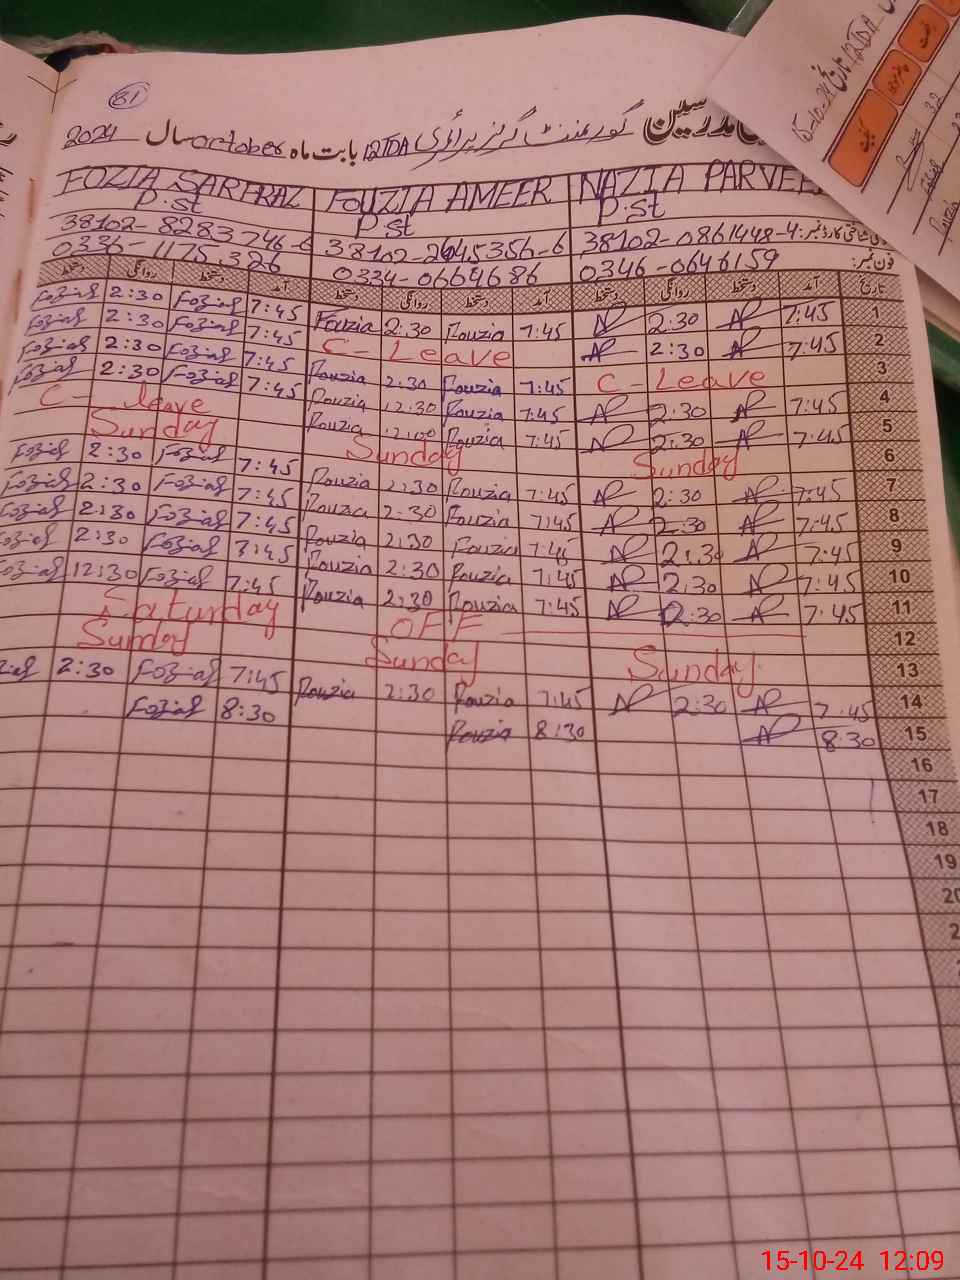 81
مدرسین گورنمنٹ گرلز پرائمری 12TDA بابت ماہ october سال 2024
FOZIA SARFRAZ FOUZIA AMEER NAZIA PARVEE
P.St P.St P.St
38102-8283746-6 38102-2645356-6 38102-0861448-4 شناختی کارڈ نمبر:
0336-1175326 0334-0664686 0346-0646159 فون نمبر:
دستخط روانگی دستخط آمد دستخط روانگی دستخط آمد دستخط روانگی دستخط آمد تاریخ
Foziaf 2:30 Foziaf 7:45 Fouzia 2:30 Fouzia 7:45 2:30 7:45 1
Foziaf 2:30 Foziaf 7:45 C-Leave 2:30 7:45 2
Foziaf 2:30 Foziaf 7:45 Fouzia 2:30 Fouzia 7:45 C-Leave 3
Foziaf 2:30 Foziaf 7:45 Fouzia 12:30 Fouzia 7:45 2:30 7:45 4
C-leave Fouzia 12:00 Fouzia 7:45 2:30 7:45 5
Sunday Sunday Sunday 6
Foziaf 2:30 Foziaf 7:45 Fouzia 2:30 Fouzia 7:45 2:30 7:45 7
Foziaf 2:30 Foziaf 7:45 Fouzia 2:30 Fouzia 7:45 2:30 7:45 8
Foziaf 2:30 Foziaf 7:45 Fouzia 2:30 Fouzia 7:45 2:30 7:45 9
Foziaf 2:30 Foziaf 7:45 Fouzia 2:30 Fouzia 7:45 2:30 7:45 10
Foziaf 12:30 Foziaf 7:45 Fouzia 2:30 Fouzia 7:45 2:30 7:45 11
Saturday OFF 12
Sunday Sunday Sunday 13
2:30 Foziaf 7:45 Fouzia 2:30 Fouzia 7:45 2:30 7:45 14
Foziaf 8:30 Fouzia 8:30 8:30 15
16
17
18
19
20
15-10-24 12TDA
15-10-24 12:09